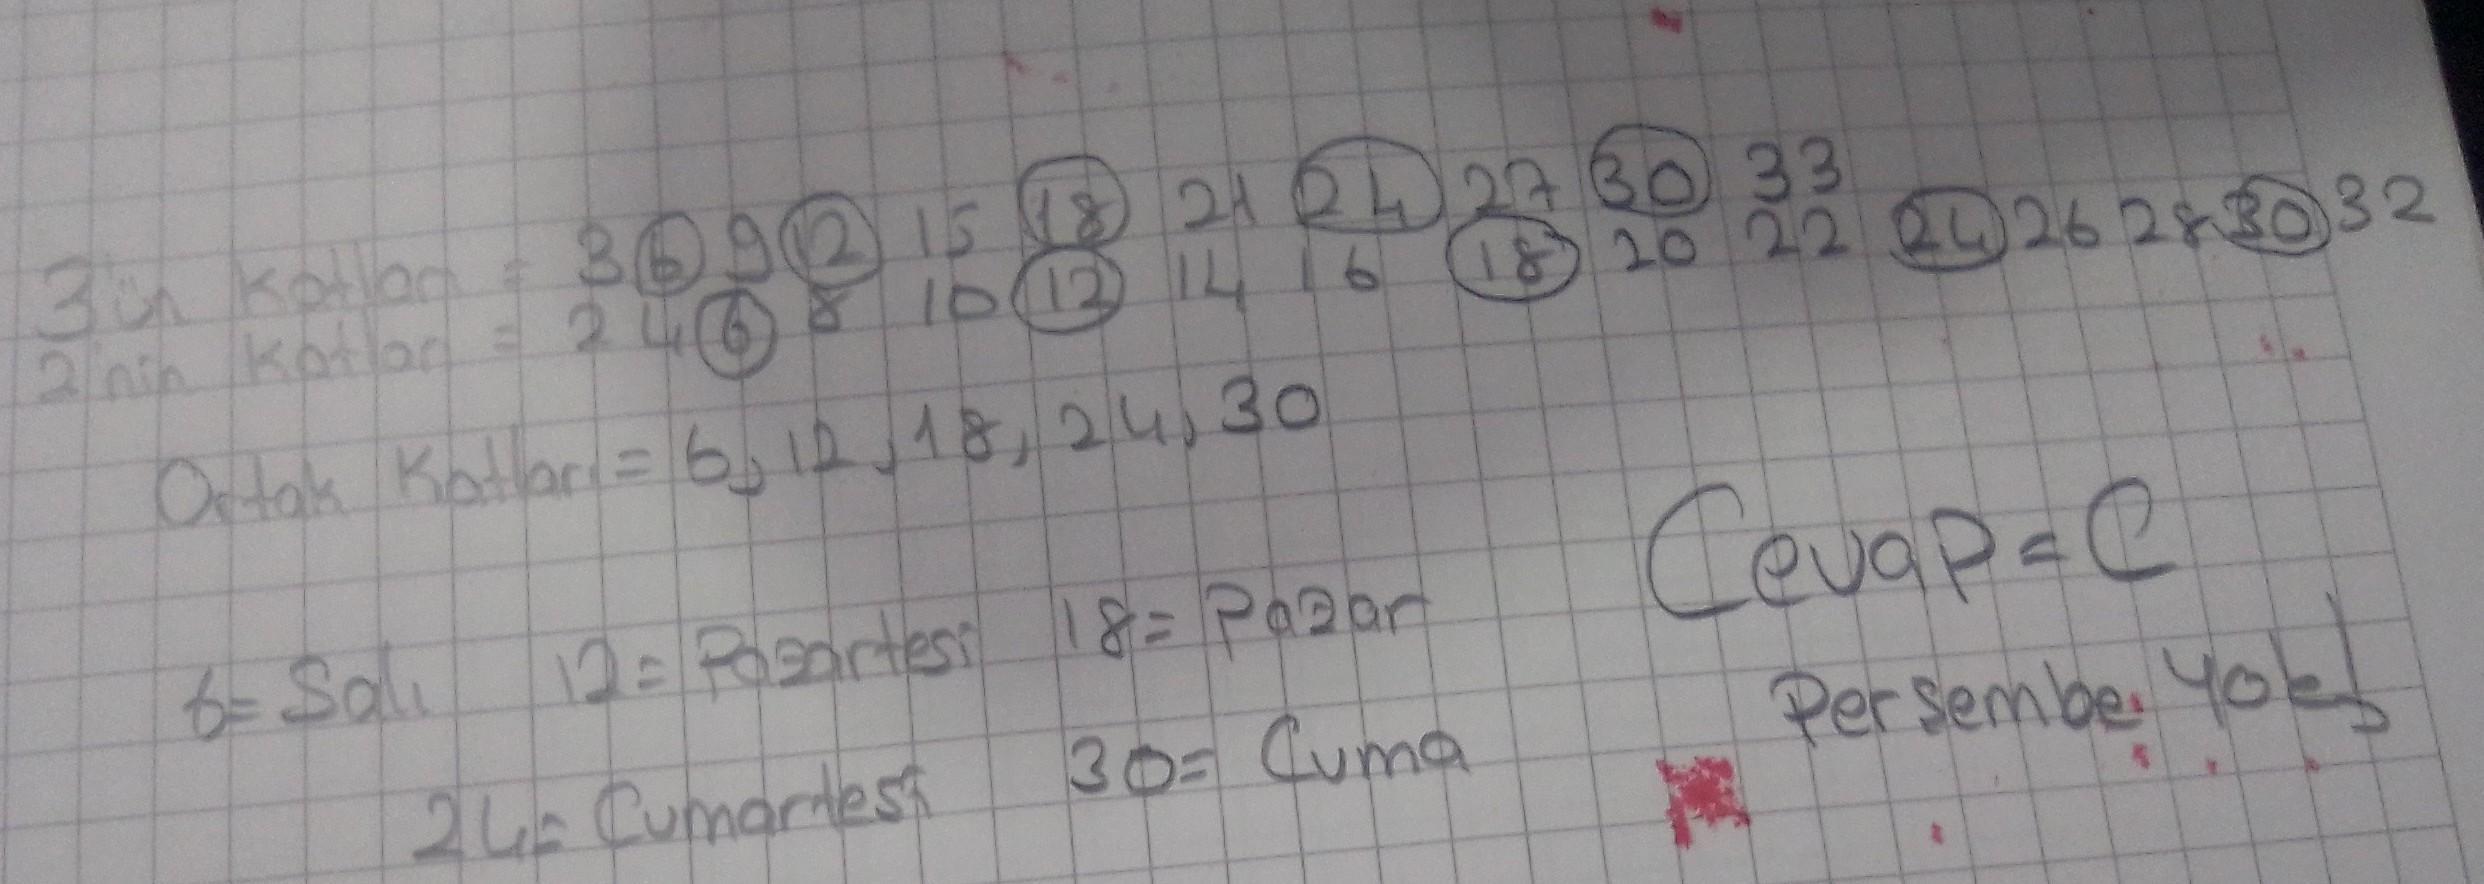 3'ün Katları = 3 6 9 12 15 18 21 24 27 30 33
2'nin Katları = 2 4 6 8 10 12 14 16 18 20 22 24 26 28 30 32
Ortak Katları = 6, 12, 18, 24, 30
Cevap = C
6= Salı 12= Pazartesi 18= Pazar
Persembe Yok!
24= Cumartesi 30= Cuma